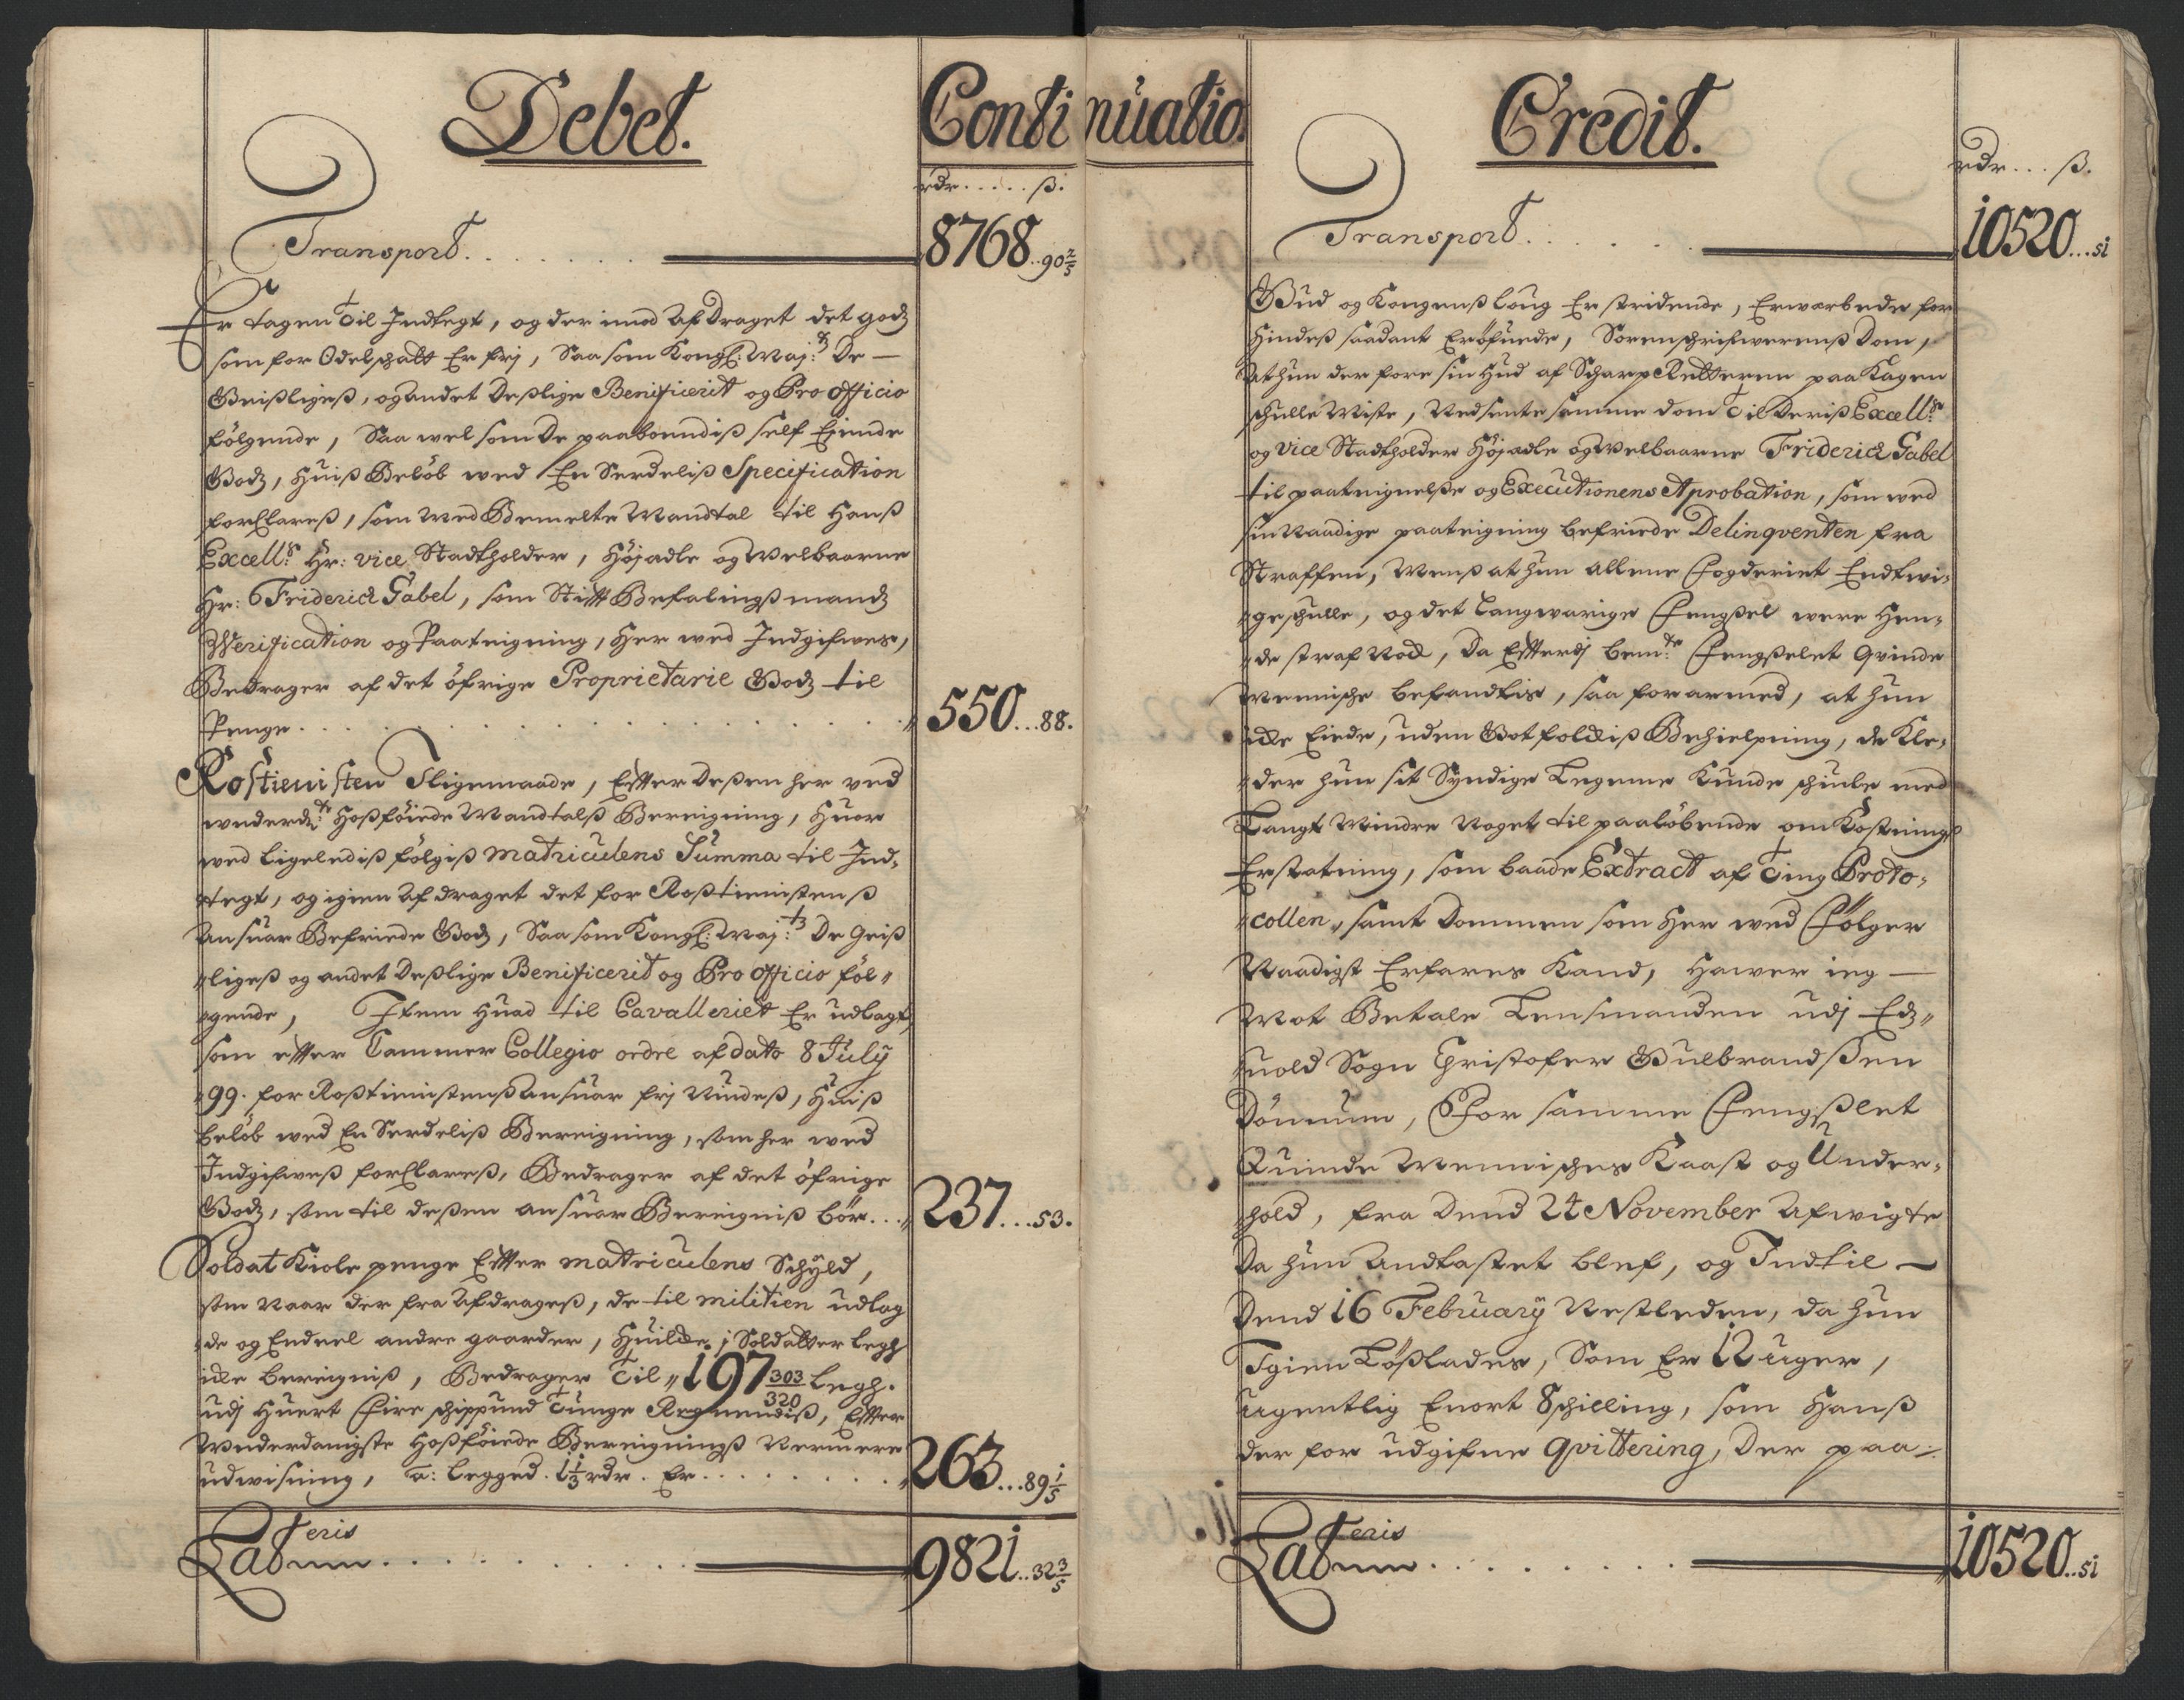 Debet.
Continuatio.
rdr.....ß.
Transport........ 8768..90 2/5
Er tagen til Indtegt, og der imod afdraget det godz
som for Odelschatt Er frj, Saa som Kongl: Maj:ts De
Geistliges, og andet deslige Benificerit og Pro officio
følgende, Saa wel som De paaboendis self Eiende
Godz, huis Beløb wed En Serdelis Specification
forklares, som wed Bemelte Mandtal til Hans
Excell:s Hr: vice Stadtholder, Højædle og Welbaarne
Hr: Friderich Gabel, som Stifft Befalingsmandz
Verification og Paateigning, her wed Indgifwes,
Bedrager af det öfrige Proprietarie Godz til
Penge.......... 550...88.
Rostienisten J ligemaade, Effter dessen her ved
hosföiede Mandtals Bereigning, huor
wed ligeledis følgis matriculens Summa til Ind-
tegt, og igien afdraget det for Rostienistens
ansuar Befriede Godz, Saa som Kongl: Maj:ts De Geist-
liges og andet deslige Benificerit og Pro officio föl-
gende, Item huad til Cavalleriet Er udlagt,
som effter Cammer Collegio ordre af dato 8 July
99. for Rostienistens ansuar frj Nindes, huis
beløb wed En Serdelis Bereigning, som her wed
Indgifwes forklares, Bedrager af det öfrige
Godz, som til dessen ansuar Bereignis bør... 237...53.
Soldat Kiole penge Effter matriculens Schyld,
som Naar der fra afdrages, de til militien udlag-
de og Endeel andre gaarder, huilcke j Soldatter legh
icke bereignis, Bedrager til 197 303/320 legh.
udj huert fire schippund tunge Regnendis, Effter
underdanigste hosföiede Bereignings Nermere
udwisning, a: legged. 1 1/3 rdr. Er......... 263...89 1/5
Lateris
Latum........... 9821..32 3/5
Credit.
rdr...ß.
Transport...... 10520...51
Gud og Kongens loug Er stridende, Erwarbede for
hindes saadant Eröfuede, Sorenschrifwerens Dom,
At hun der fore sin hud af Scharp Retteren paa Kagen
schulle Miste, Nedsente samme dom til Deris Excell:s
og vice Stadtholder Højædle og Welbaarne Friderich Gabel
til paateignelse og Executionens Aprobation, som wed
sin Naadige paateigning befriede Delinqventen fra
Straffen, Mens at hun allene fogderiet Endtwi-
ge schulle, og det langwarige fengssel were hen-
de straf Nock, da Efterdj bem:te fengsslet Qvinde
Menniche befandtis, saa forarmed, at hun
icke Eiede, uden Got folckis Behielpning, de Kle-
der hun sit Syndige Legeme Kunde schiule med
Langt Mindre Noget til paaløbende omkostnings
Erstatning, som baade Extract af Ting Proto-
collen, samt Dommen som her wed følger
Naadigst Erfares Kand, hawer ieg
Mot Betale Lensmanden udj Edz-
uold Sogn Christofer Gulbrandssen
Dönnum, For samme fengsslet
Quinde Menniches Kaast og Under-
hold, fra dend 24 November afwigte
da hun andtastet blef, og Indtil
dend 16 February Nestleden, da hun
Igien Lösslades, Som Er 12 uger,
ugentlig Enort 8 schilling, som hans
der for udgifne qvittering, Der paa
Lateris
Latum......... 10520..51